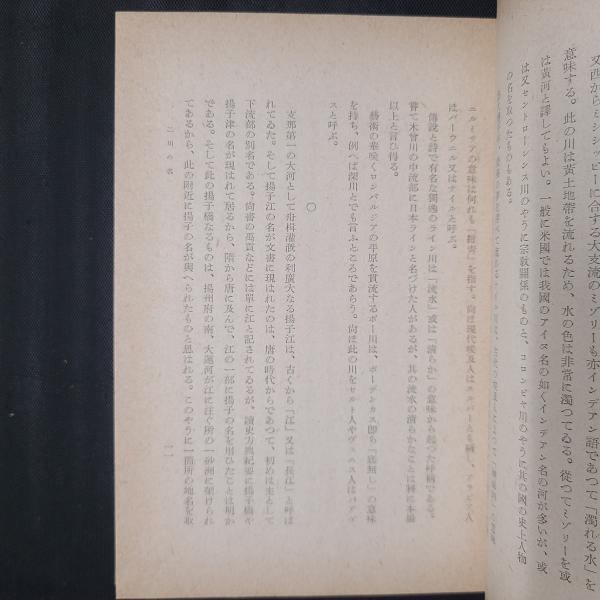 又西からミシシッピーに合する大支流のミゾリーも亦インデアン語であつて「濁れる水」を
意味する。此の川は黄土地帯を流れるため、水の色は非常に濁つてゐる。從つてミゾリーを或
は黄河と譯してもよい。一般に米國では我國のアイヌ名の如くインデアン名の河が多いが、或
は又セントローレンス川のやうに宗敎關係のものと、コロンビヤ川のやうに其の國の史上人物
の名を取つたものもある。
ニルミツアの意味は何れも「紺靑」を指す。尙ほ現代埃及人は
はバーラニル又はナイルと呼ぶ。
傳說と詩で有名な獨逸のライン川は「流水」或は「淸らか」の意味から起つた呼稱である。
嘗て木曾川の中流部に日本ラインと名づけた人があるが、其の流水の淸らかなことは稀に本場
以上と言ひ得る。
藝術の華咲くロンバルジアの平原を貫流するポー川は、ボーデンカス卽ち「底無し」の意味
を持ち、例へば深川とでも言ふところであらう。尙ほ此の川をセルト人やヴェニス人はパデヴ
スと呼ぶ。
〇
支那第一の大河として舟楫灌漑の利廣大なる揚子江は、古くから「江」又は「長江」と呼ば
れてゐた。そして揚子江の名が文書に現はれたのは、唐の時代からであつて、初めは主として
下流部の別名である。尙書の禹貢などには單に江と記されてゐるが、讀史方輿紀要に揚子橋や
揚子津の名が現はれて居るから、隋から唐に及んで、江の一部に揚子の名を用ひたことは明か
である。そして此の揚子橋なるものは、揚州府の南、大運河が江に注ぐ所の一砂洲に架けられ
てあるから、此の附近に揚子の名が與へられたものと思はれる。このやうに一箇所の地名を取
二 川の名
一一